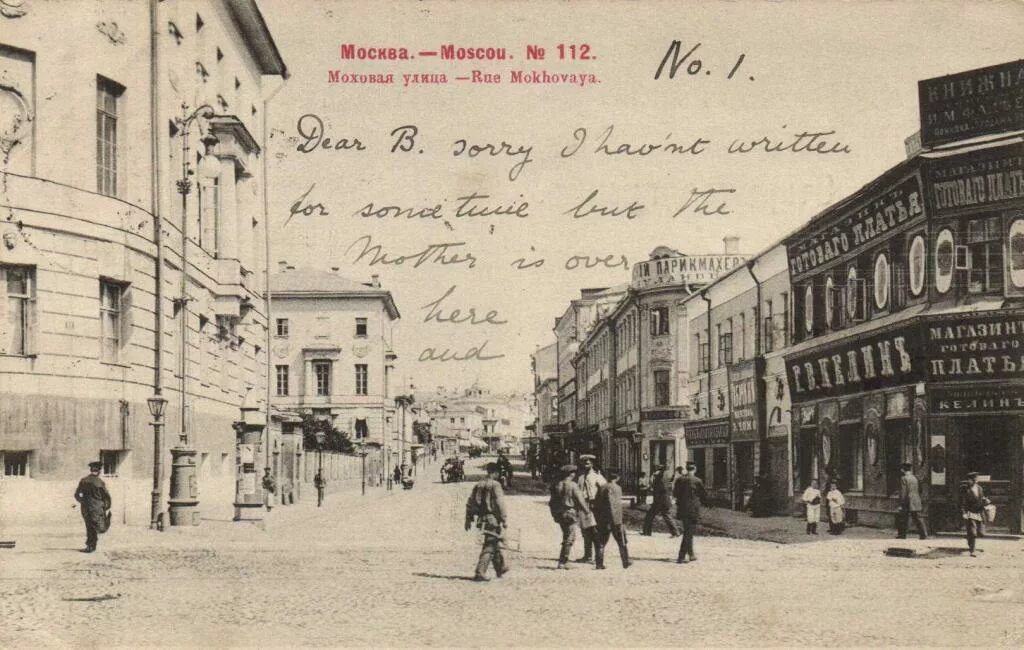 Москва.—Moscou. № 112.
Моховая улица —Rue Mokhovaya.
No. 1.
Dear B. sorry I hav'nt written
for sometime but the
Mother is over
here
and
КНИЖНА
МАГАЗИНЪ
ГОТОВАГО ПЛАТЬЯ
ГОТОВАГО ПЛАТЬЯ.
ПАРИКМАХЕР
КЕЛИНЪ
МАГАЗИНЪ
ГОТОВАГО
ПЛАТЬЯ
КЕЛИНЪ